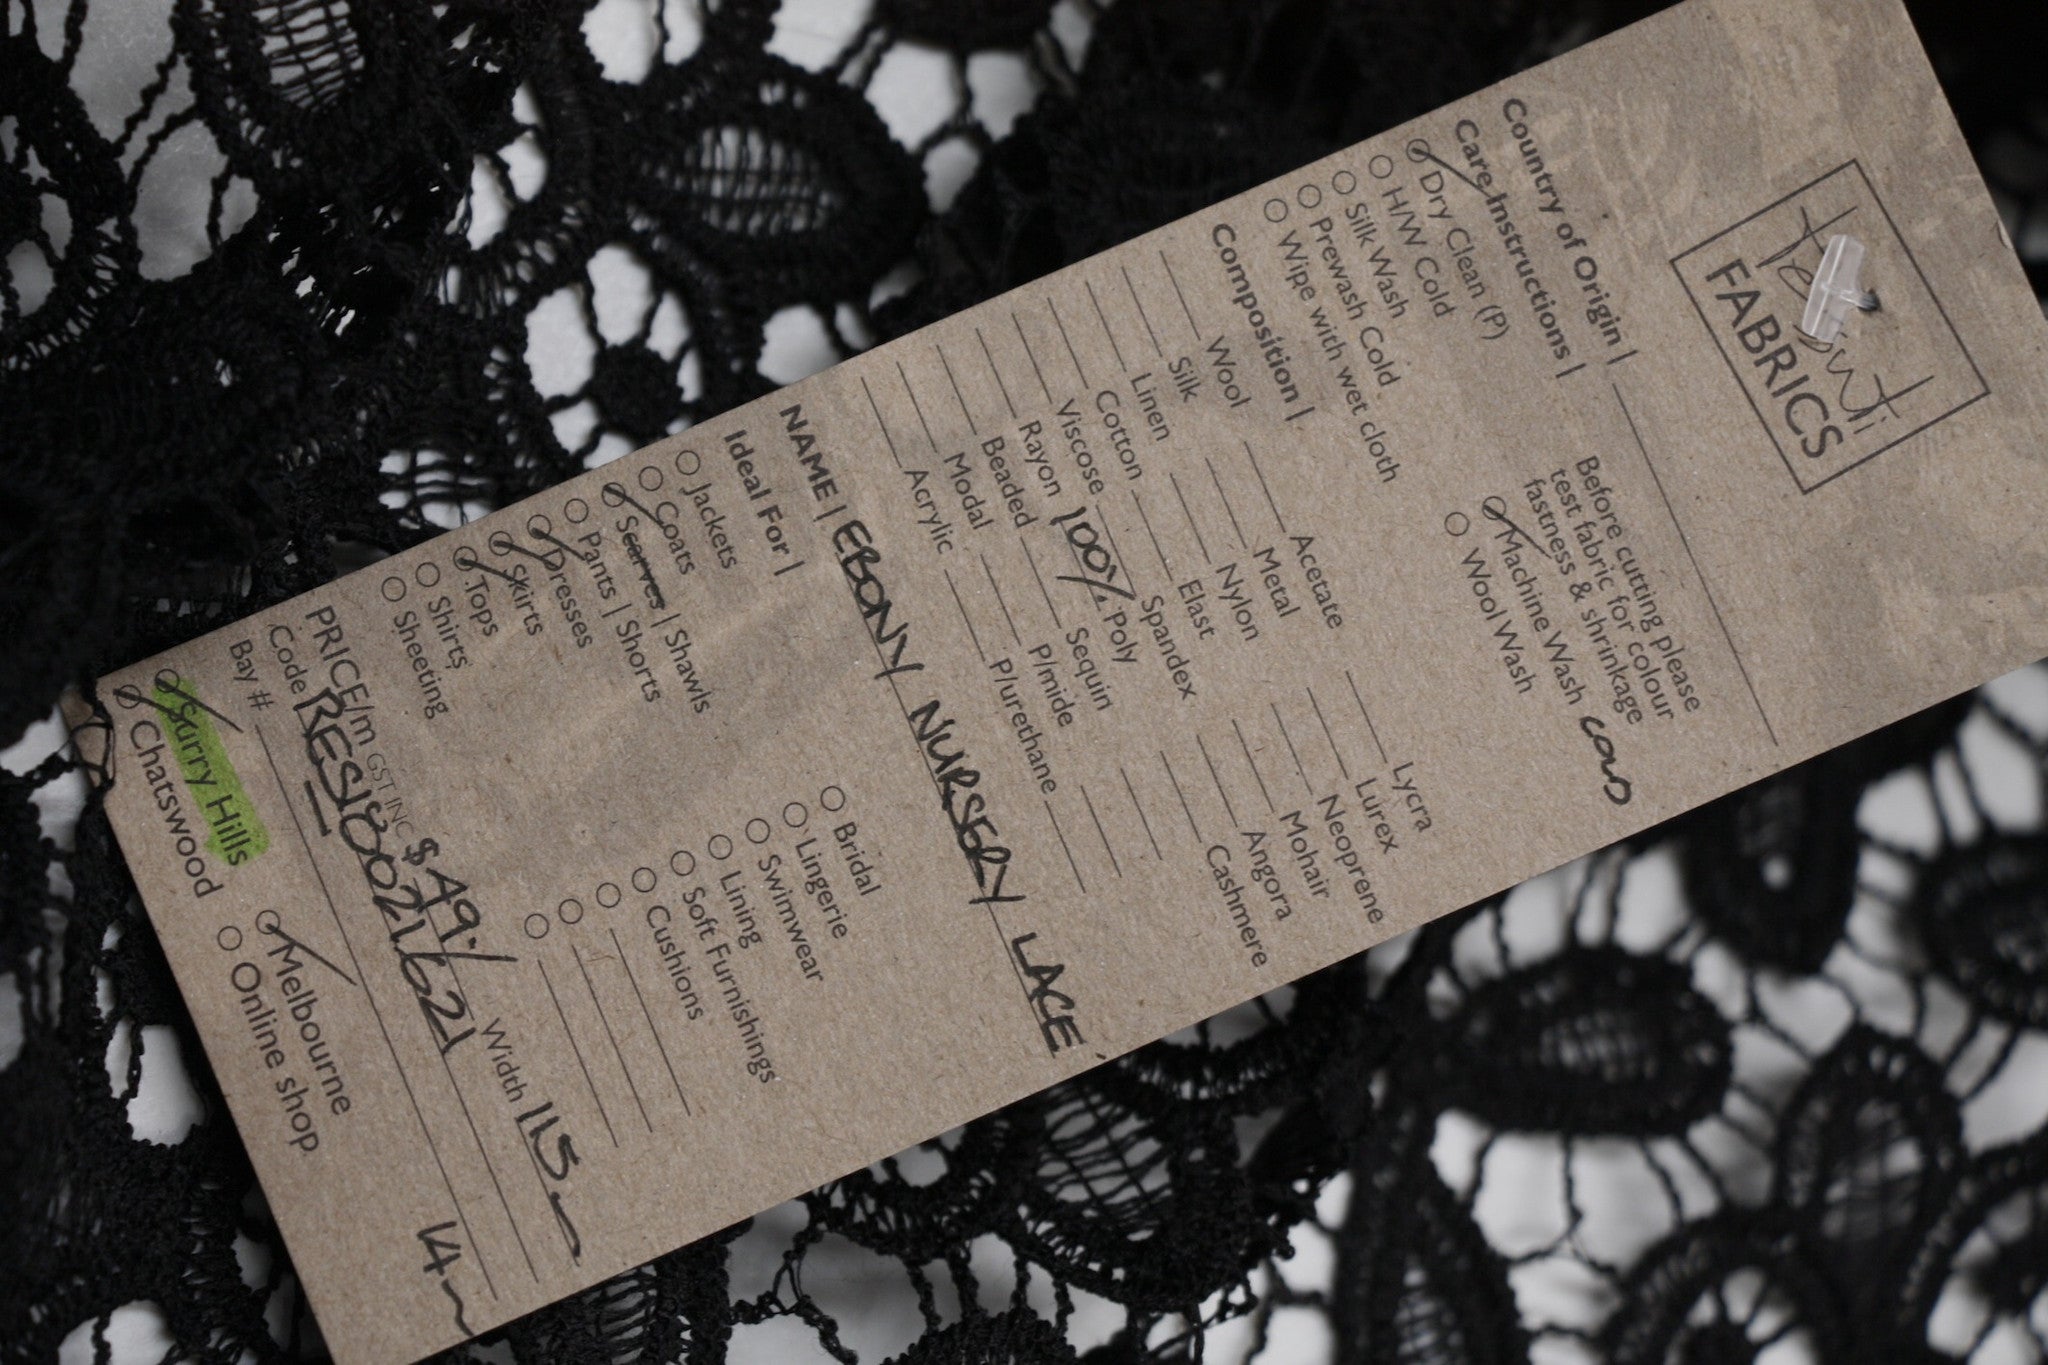 FABRICS
Country of Origin |
Care Instructions |
Before cutting please
test fabric for colour
fastness & shrinkage
Dry Clean (P)
H/W Cold
Silk Wash
Prewash Cold
Wipe with wet cloth
Machine Wash COLD
Wool Wash
Composition |
Wool Acetate Lycra
Silk Metal Lurex
Linen Nylon Neoprene
Cotton Elast Mohair
Viscose Spandex Angora
Rayon 100% Poly Cashmere
Beaded Sequin
Modal P/mide
Acrylic P/urethane
NAME | EBONY NURSERY LACE
Ideal For |
Jackets Bridal
Coats Lingerie
Scarves | Shawls Swimwear
Pants | Shorts Lining
Dresses Soft Furnishings
Skirts Cushions
Tops
Shirts
Sheeting
PRICE/m GST INC $49./ Width 115
Code RES180021621
Bay # 14m
Surry Hills Melbourne
Chatswood Online shop